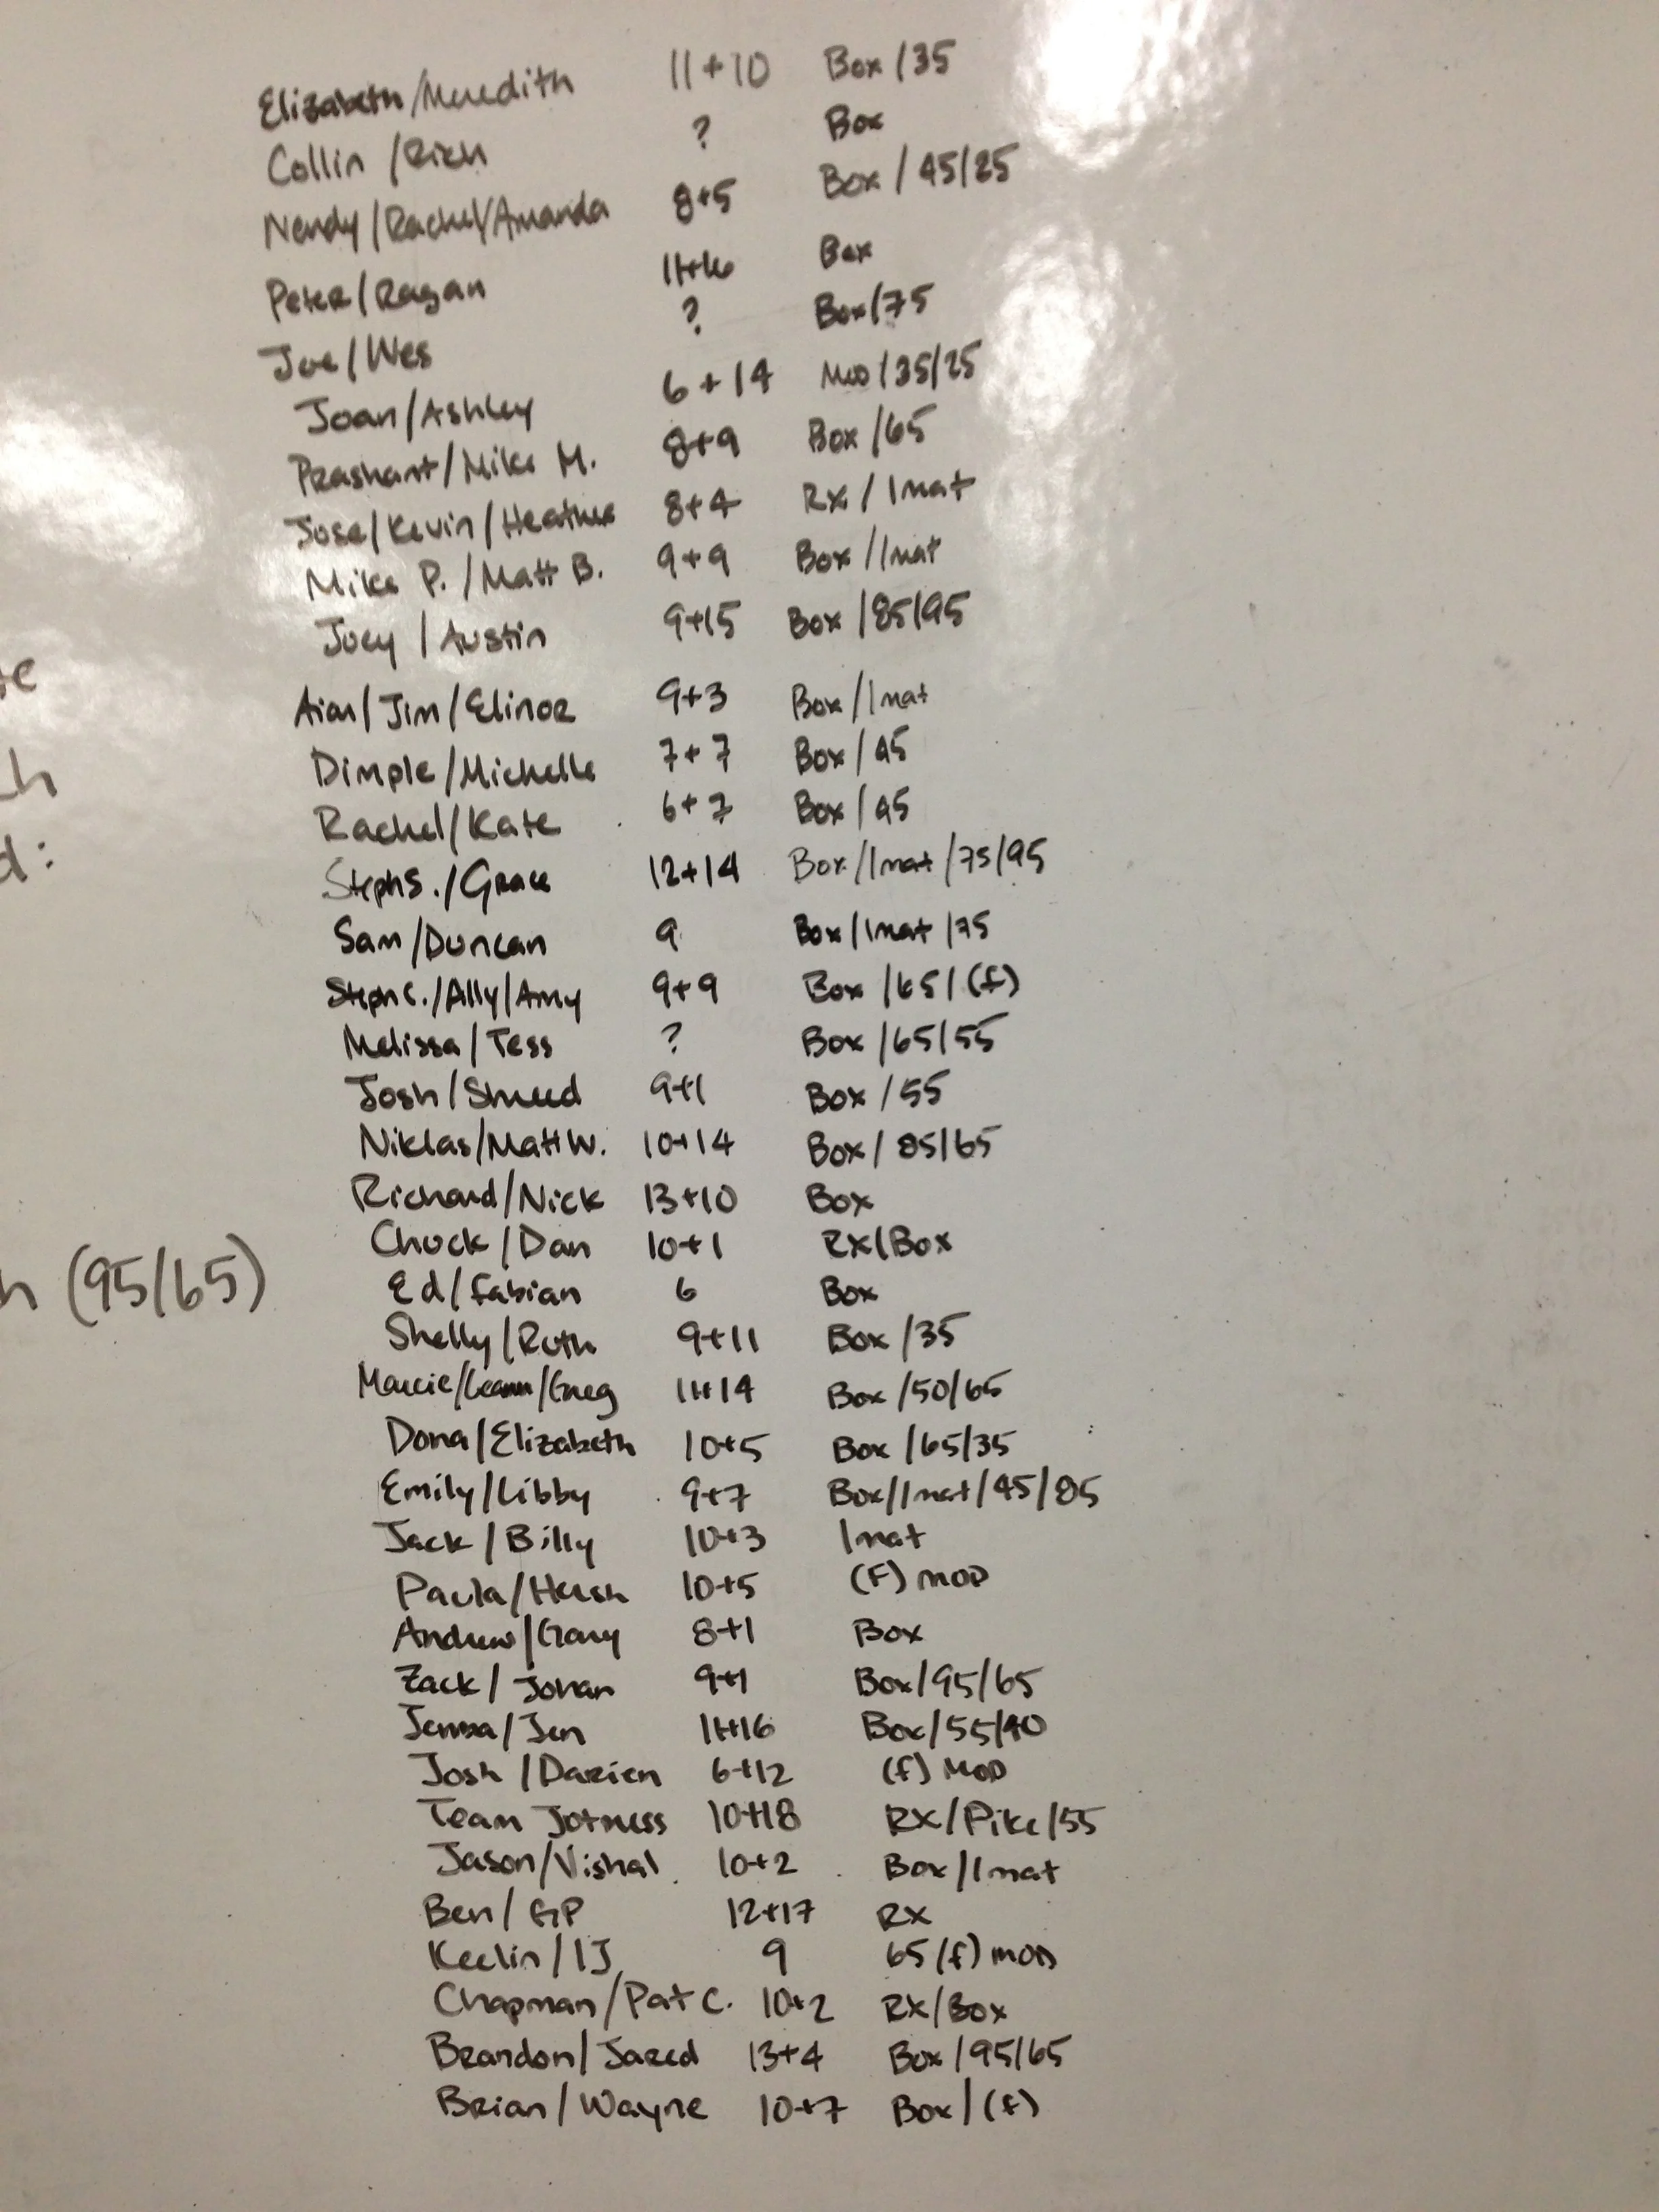 Elizabeth/Meredith 11+10 Box/35
Collin/Rich ? Box
Nendy/Rachel/Amanda 8+5 Box/45/25
Peter/Ragan 11+16 Box
Joe/Wes ? Box/75
Joan/Ashley 6+14 MOD/35/25
Prashant/Mike M. 8+9 Box/65
Jose/Kevin/Heather 8+4 Rx/1mat
Mike P./Matt B. 9+9 Box/1mat
Joey/Austin 9+15 Box/85/95
te
Aian/Jim/Elinor 9+3 Box/1mat
Dimple/Michelle 7+7 Box/45
Rachel/Kate 6+7 Box/45
d:
Steph S./Grace 12+14 Box/1mat/75/95
Sam/Duncan 9 Box/1mat/75
Steph C./Ally/Amy 9+9 Box/65/(f)
Melissa/Tess ? Box/65/55
Josh/ 9+1 Box/55
Niklas/Matt W. 10+14 Box/85/65
Richard/Nick 13+10 Box
Chuck/Dan 10+1 RX/Box
(95/65)
Ed/Fabian 6 Box
Shelly/Ruth 9+11 Box/35
Marcie/Leann/Greg 11+14 Box/50/65
Dona/Elizabeth 10+5 Box/65/35
Emily/Libby 9+7 Box/1mat/45/85
Jack/Billy 10+3 1mat
Paula/Hersh 10+5 (F) MOD
Andrew/Gary 8+1 Box
Zack/Johan 9+1 Box/95/65
Jenna/Jen 11+16 Box/55/40
Josh/Darien 6+12 (f) MOD
Team Jotness 10+18 RX/Pike/55
Jason/Vishal 10+2 Box/1mat
Ben/GP 12+17 RX
Keelin/IJ 9 65(f) MOD
Chapman/Pat C. 10+2 RX/Box
Brandon/Jared 13+4 Box/95/65
Brian/Wayne 10+7 Box/(f)